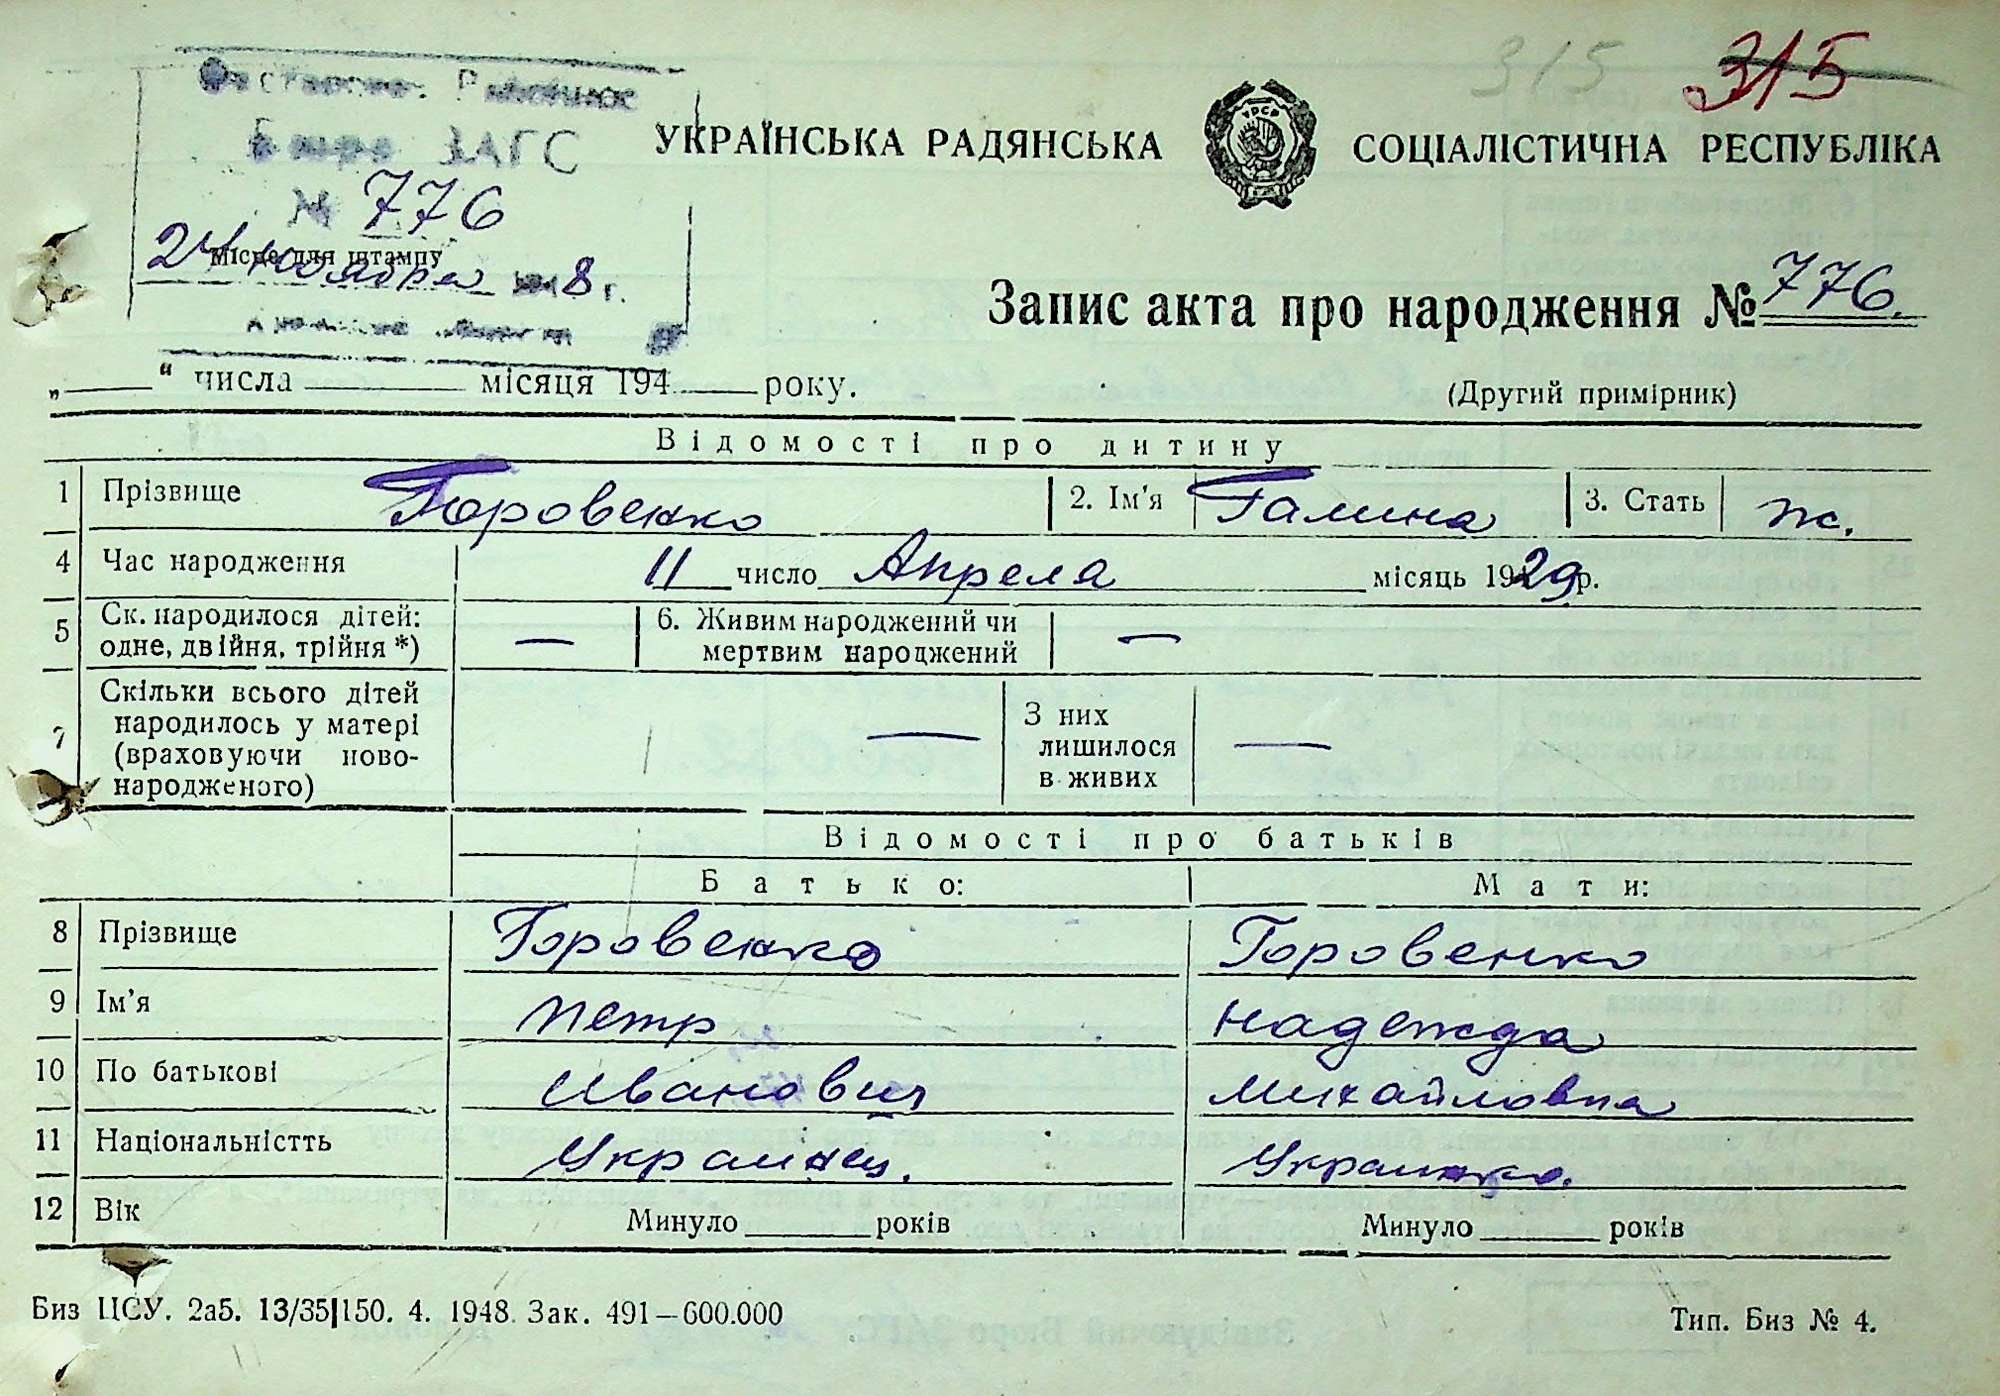 315 315
ЗАГС
№ 776
24 ноября 8 г.
Місце для штампу
УКРАЇНСЬКА РАДЯНСЬКА СОЦІАЛІСТИЧНА РЕСПУБЛІКА
УРСР
Запис акта про народження № 776.
„ “ числа місяця 194 року.
(Другий примірник)
Відомості про дитину
1 Прізвище Горовенко 2. Ім'я Галина 3. Стать ж.
4 Час народження 11 число Апреля місяць 1929 р.
5 Ск. народилося дітей: одне, двійня, трійня *) — 6. Живим народжений чи мертвим народжений —
7 Скільки всього дітей народилось у матері (враховуючи ново-народженого) — З них лишилося в живих —
Відомості про батьків
Батько: Мати:
8 Прізвище Горовенко Горовенко
9 Ім'я Петр Надежда
10 По батькові Иванович Михайловна
11 Національністть Украинец. Украинка.
12 Вік Минуло років Минуло років
Биз ЦСУ. 2а5. 13/35|150. 4. 1948. Зак. 491—600.000
Тип. Биз № 4.